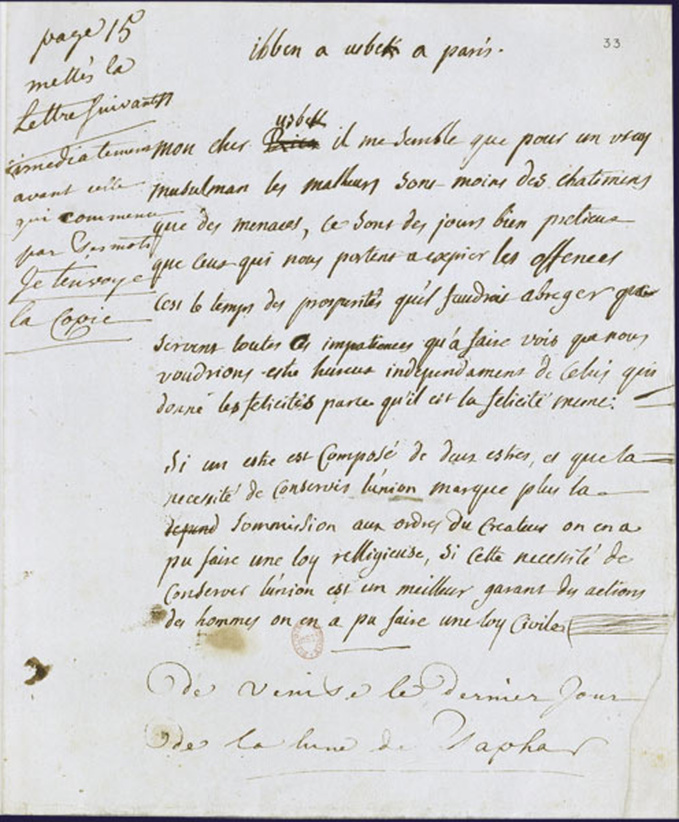 33
page 15
mettés la
Lettre suivante
immediatement
avant celle
qui commence
par ces mots
Je t'envoye
la Copie
ibben a usbek a paris.
usbek
mon cher il me semble que pour un vray
musulman les malheurs sont moins des chatimens
que des menaces, ce sont des jours bien pretieux
que ceux qui nous portent a expier les offences
c'est le temps des prosperités qu'il faudroit abreger que
servent toutes ces impatiences qu'a faire voir que nous
voudrions estre heureux independament de Celui qui
donne les felicités parce qu'il est la felicité meme.
Si un estre est Composé de deux estres, et que la
necessité de Conserver l'union marque plus la
soommission aux ordres du Createur on en a
pu faire une loy relligieuse, Si Cette necessité de
Conserver l'union est un meilleur garant des actions
des hommes on en a pu faire une loy Civile
de venise le dernier Jour
de la lune de Saphar